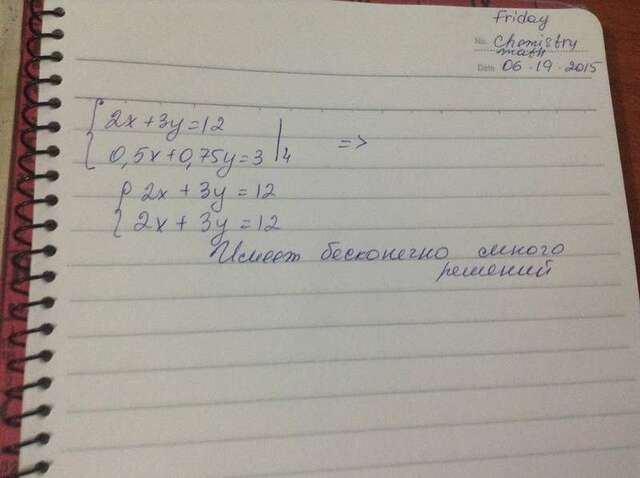 Friday
No. Chemistry
math
Date 06 - 19 - 2015
{ 2x + 3y = 12
0,5x + 0,75y = 3 | 4 =>
{ 2x + 3y = 12
2x + 3y = 12
Имеет бесконечно много
решений